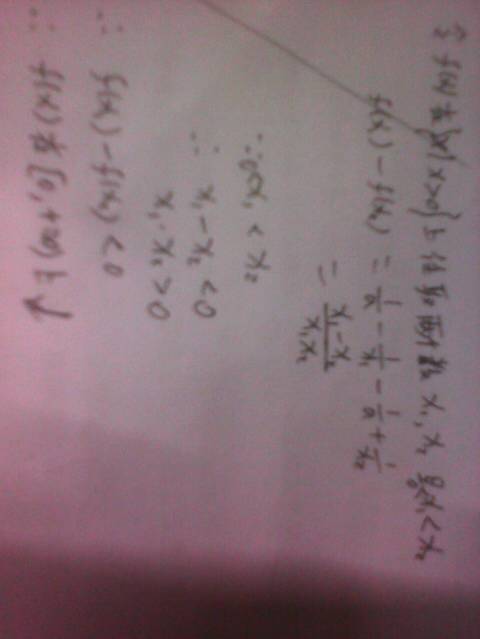 令f(x)在{x|x>0}上任意两个数 x₁,x₂ 且0<x₁<x₂
f(x₁) - f(x₂) = 1/a - 1/x₁ - 1/a + 1/x₂
= (x₁-x₂)/(x₁x₂)
∵0<x₁<x₂
∴ x₁-x₂<0
x₁·x₂>0
∴ f(x₁)-f(x₂)<0
∴ f(x)在[0,+∞)上↑